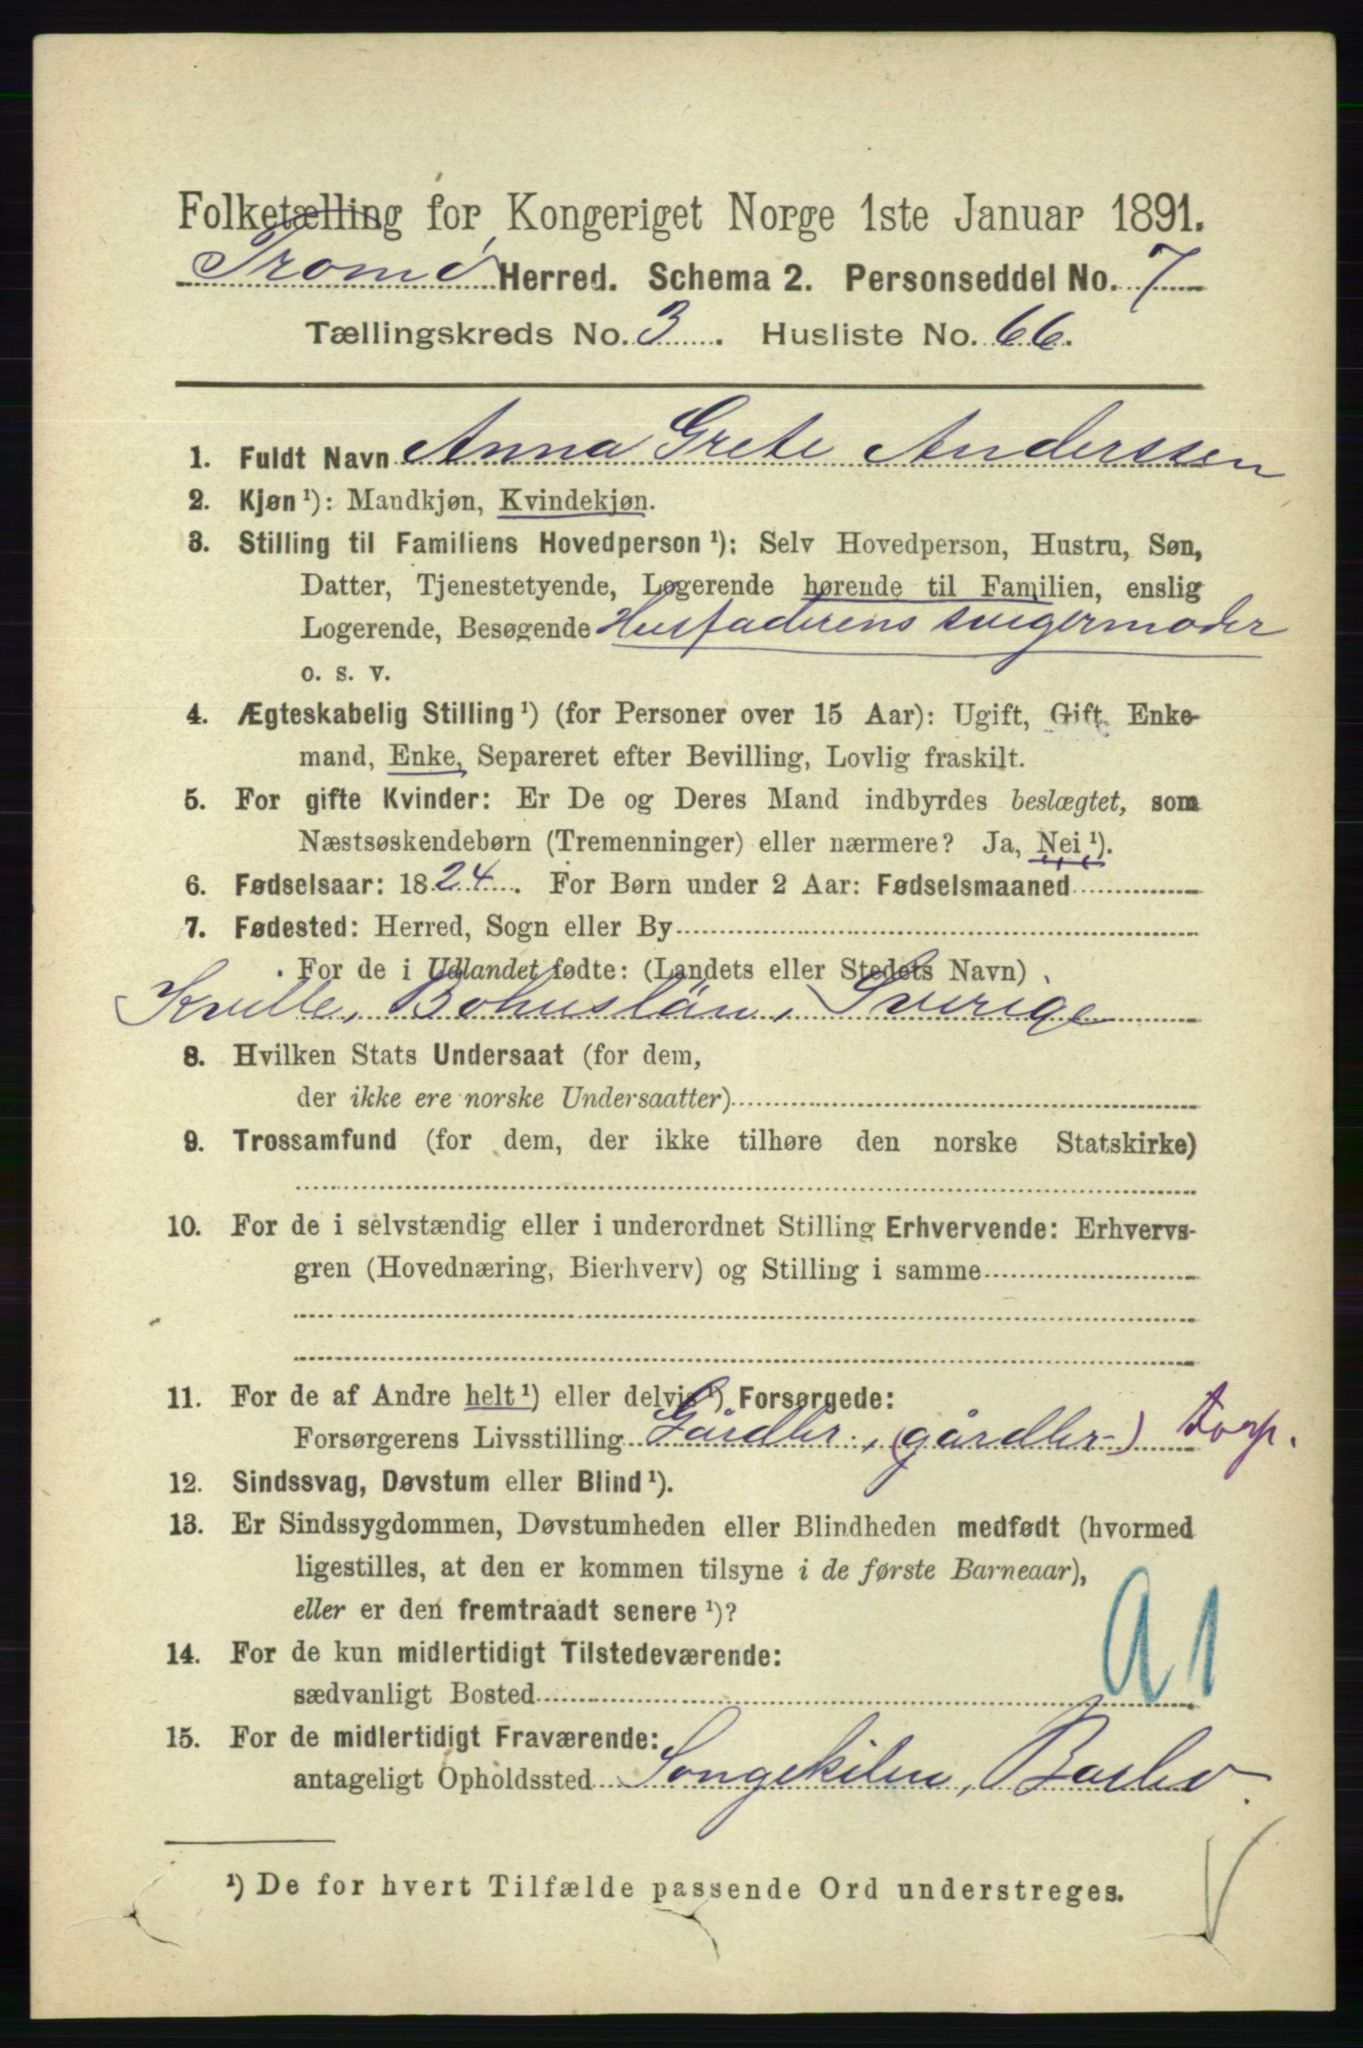 Folketælling for Kongeriget Norge 1ste Januar 1891.
Tromø Herred. Schema 2. Personseddel No. 7
Tællingskreds No. 3. Husliste No. 66.
1. Fuldt Navn Anna Grete Anderssen
2. Kjøn¹): Mandkjøn, Kvindekjøn.
3. Stilling til Familiens Hovedperson¹): Selv Hovedperson, Hustru, Søn,
Datter, Tjenestetyende, Logerende hørende til Familien, enslig
Logerende, Besøgende Husfaderens svigermoder
o. s. v.
4. Ægteskabelig Stilling¹) (for Personer over 15 Aar): Ugift, Gift, Enke-
mand, Enke, Separeret efter Bevilling, Lovlig fraskilt.
5. For gifte Kvinder: Er De og Deres Mand indbyrdes beslægtet, som
Næstsøskendebørn (Tremenninger) eller nærmere? Ja, Nei¹).
6. Fødselsaar: 1824. For Børn under 2 Aar: Fødselsmaaned
7. Fødested: Herred, Sogn eller By
For de i Udlandet fødte: (Landets eller Stedets Navn)
Kville, Bohuslän, Sverige
8. Hvilken Stats Undersaat (for dem,
der ikke ere norske Undersaatter)
9. Trossamfund (for dem, der ikke tilhøre den norske Statskirke)
10. For de i selvstændig eller i underordnet Stilling Erhvervende: Erhvervs-
gren (Hovednæring, Bierhverv) og Stilling i samme
11. For de af Andre helt¹) eller delvis¹) Forsørgede:
Forsørgerens Livsstilling Gårdbr., (gårdbr-) torp.
12. Sindssvag, Døvstum eller Blind¹).
13. Er Sindssygdommen, Døvstumheden eller Blindheden medfødt (hvormed
ligestilles, at den er kommen tilsyne i de første Barneaar),
eller er den fremtraadt senere¹)?
14. For de kun midlertidigt Tilstedeværende:
sædvanligt Bosted
a1
15. For de midlertidigt Fraværende:
antageligt Opholdssted Songekilen, Barbo.
¹) De for hvert Tilfælde passende Ord understreges.